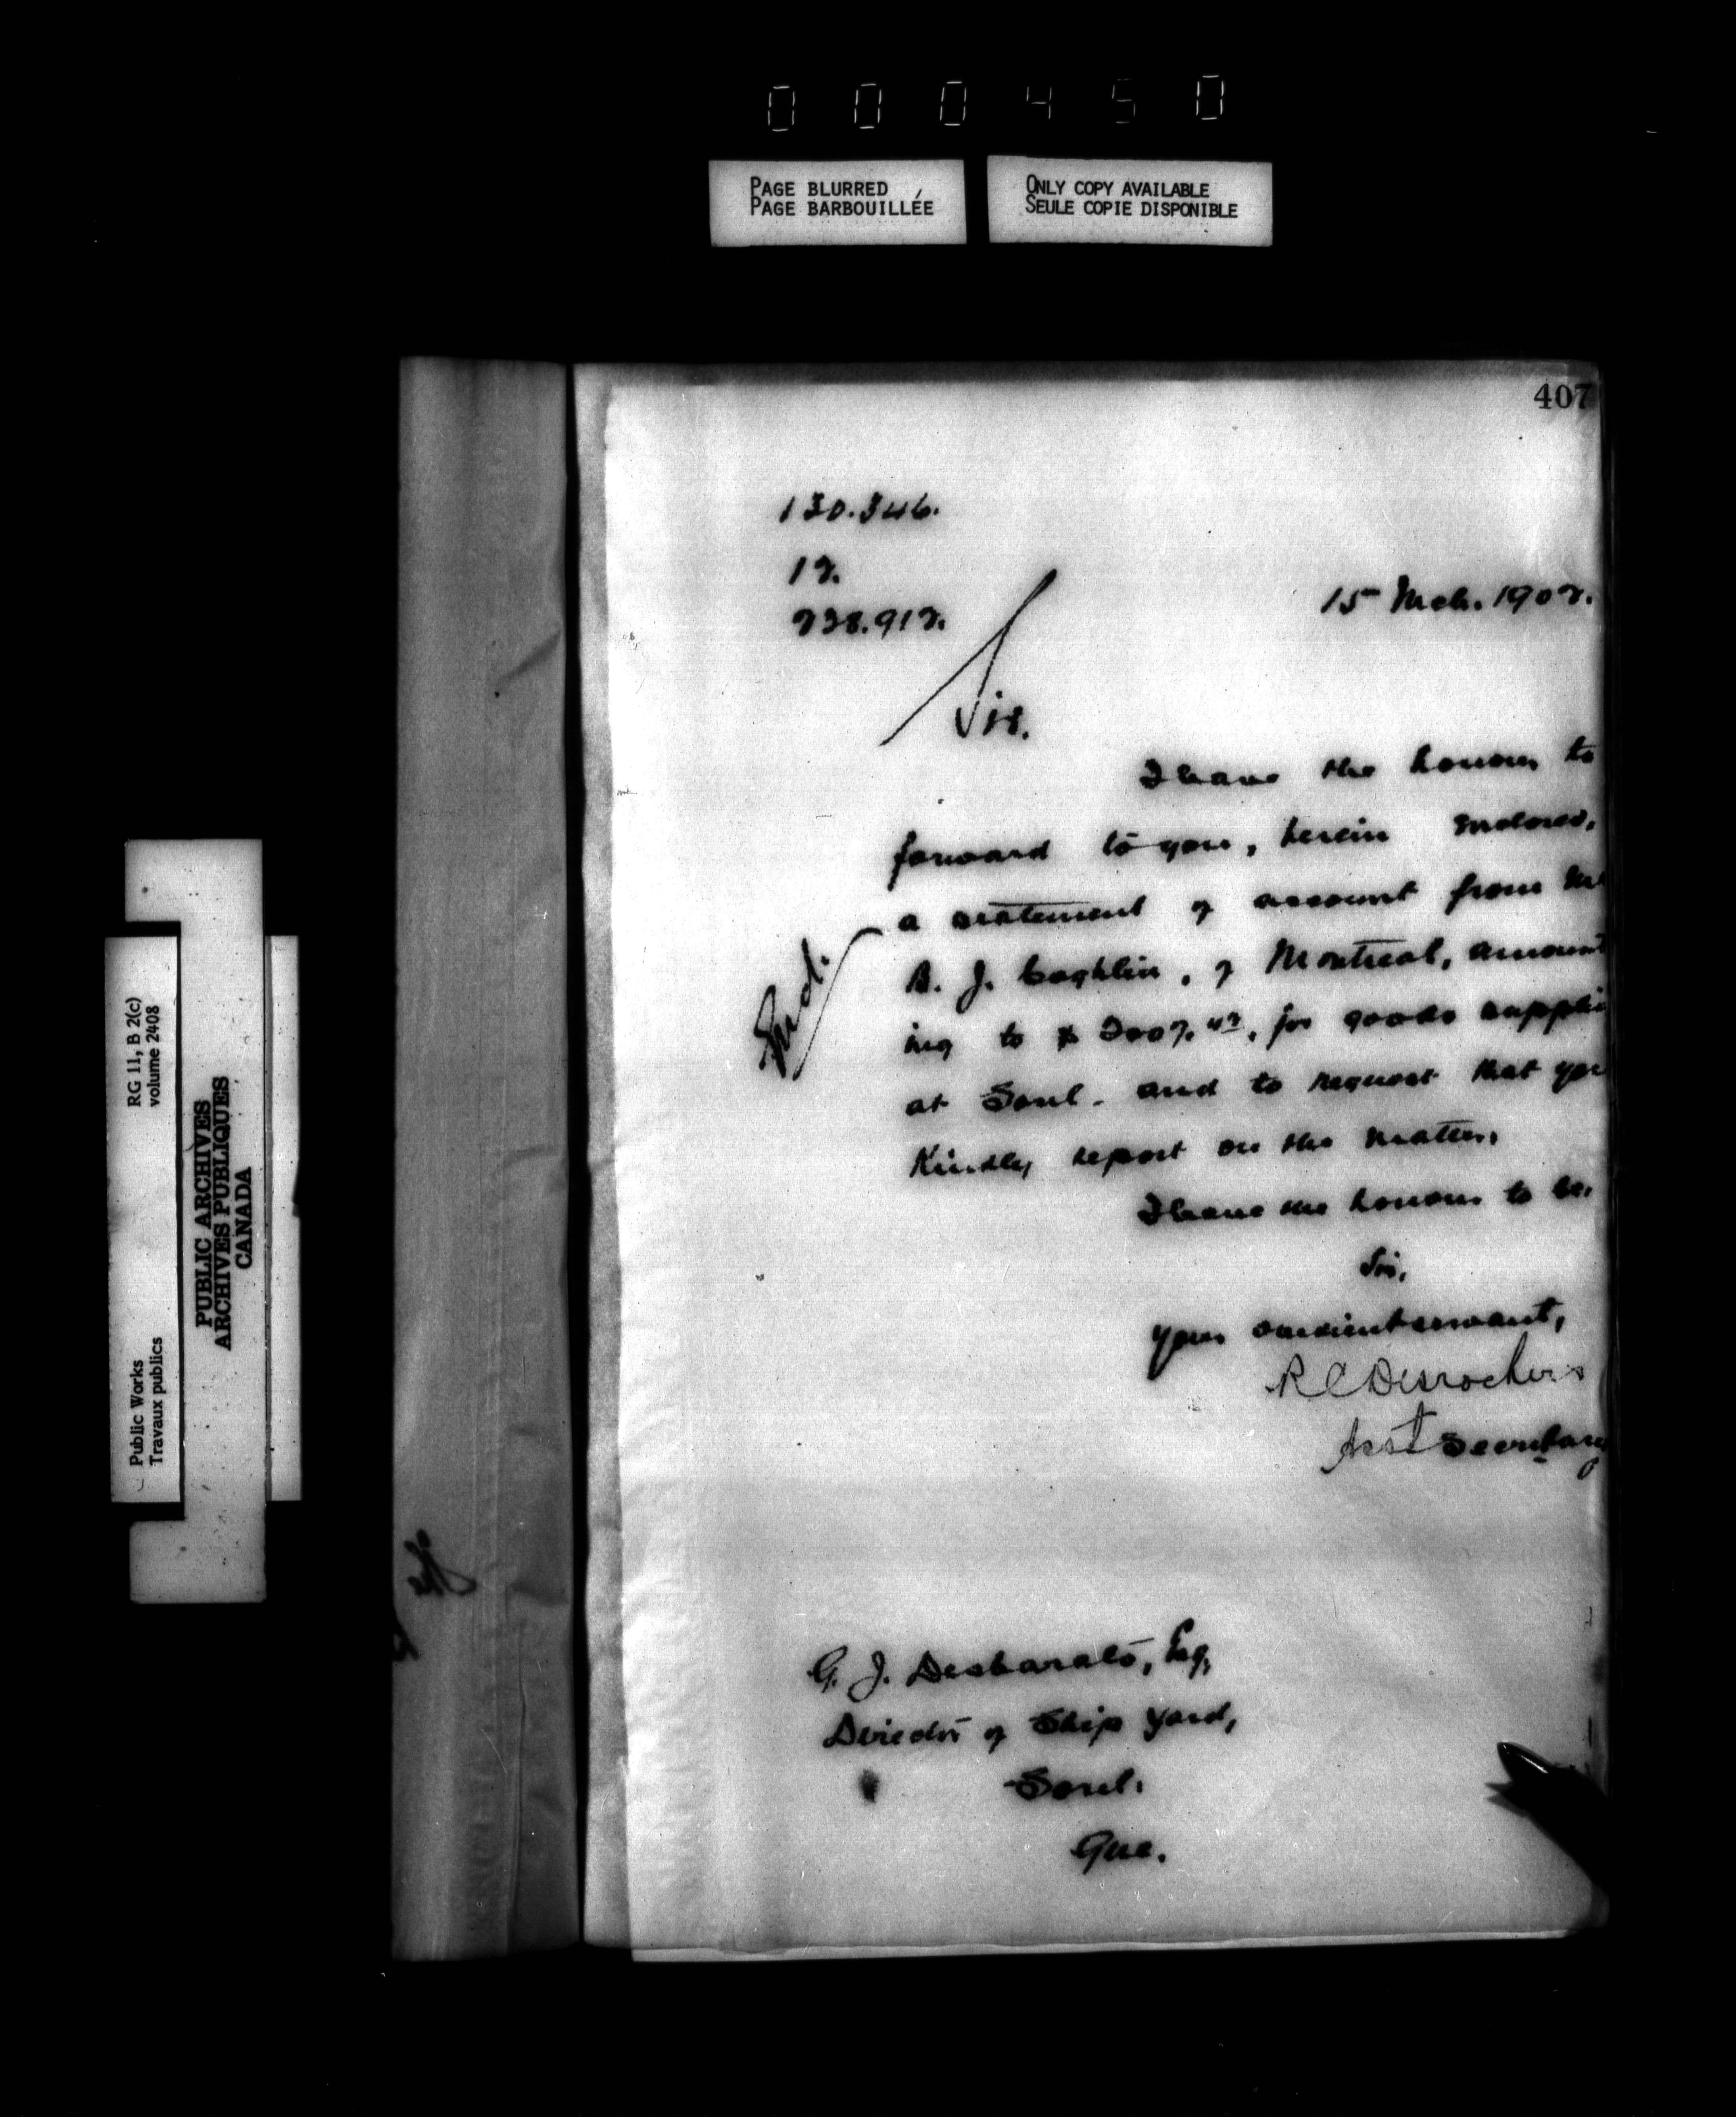 000450
PAGE BLURRED
PAGE BARBOUILLÉE
ONLY COPY AVAILABLE
SEULE COPIE DISPONIBLE
407
130.346.
12.
238.912.
15 Mch. 1902.
Sir.
I have the honour to
forward to you, herein enclosed,
a statement of account from Mr
B. J. Coghlin, of Montreal, amount
ing to $ 2007.42, for goods supplie
at Sorel. and to request that you
Kindly report on the matter.
Encl.
I have the honour to be.
Sir,
your obedient servant,
R C Desrochers
Asst Secretary
G. J. Desbarats, Esq,
Director of Ship Yard,
Sorel.
Que.
the
RG 11, B 2(c)
volume 2408
Public Works
Travaux publics
PUBLIC ARCHIVES
ARCHIVES PUBLIQUES
CANADA